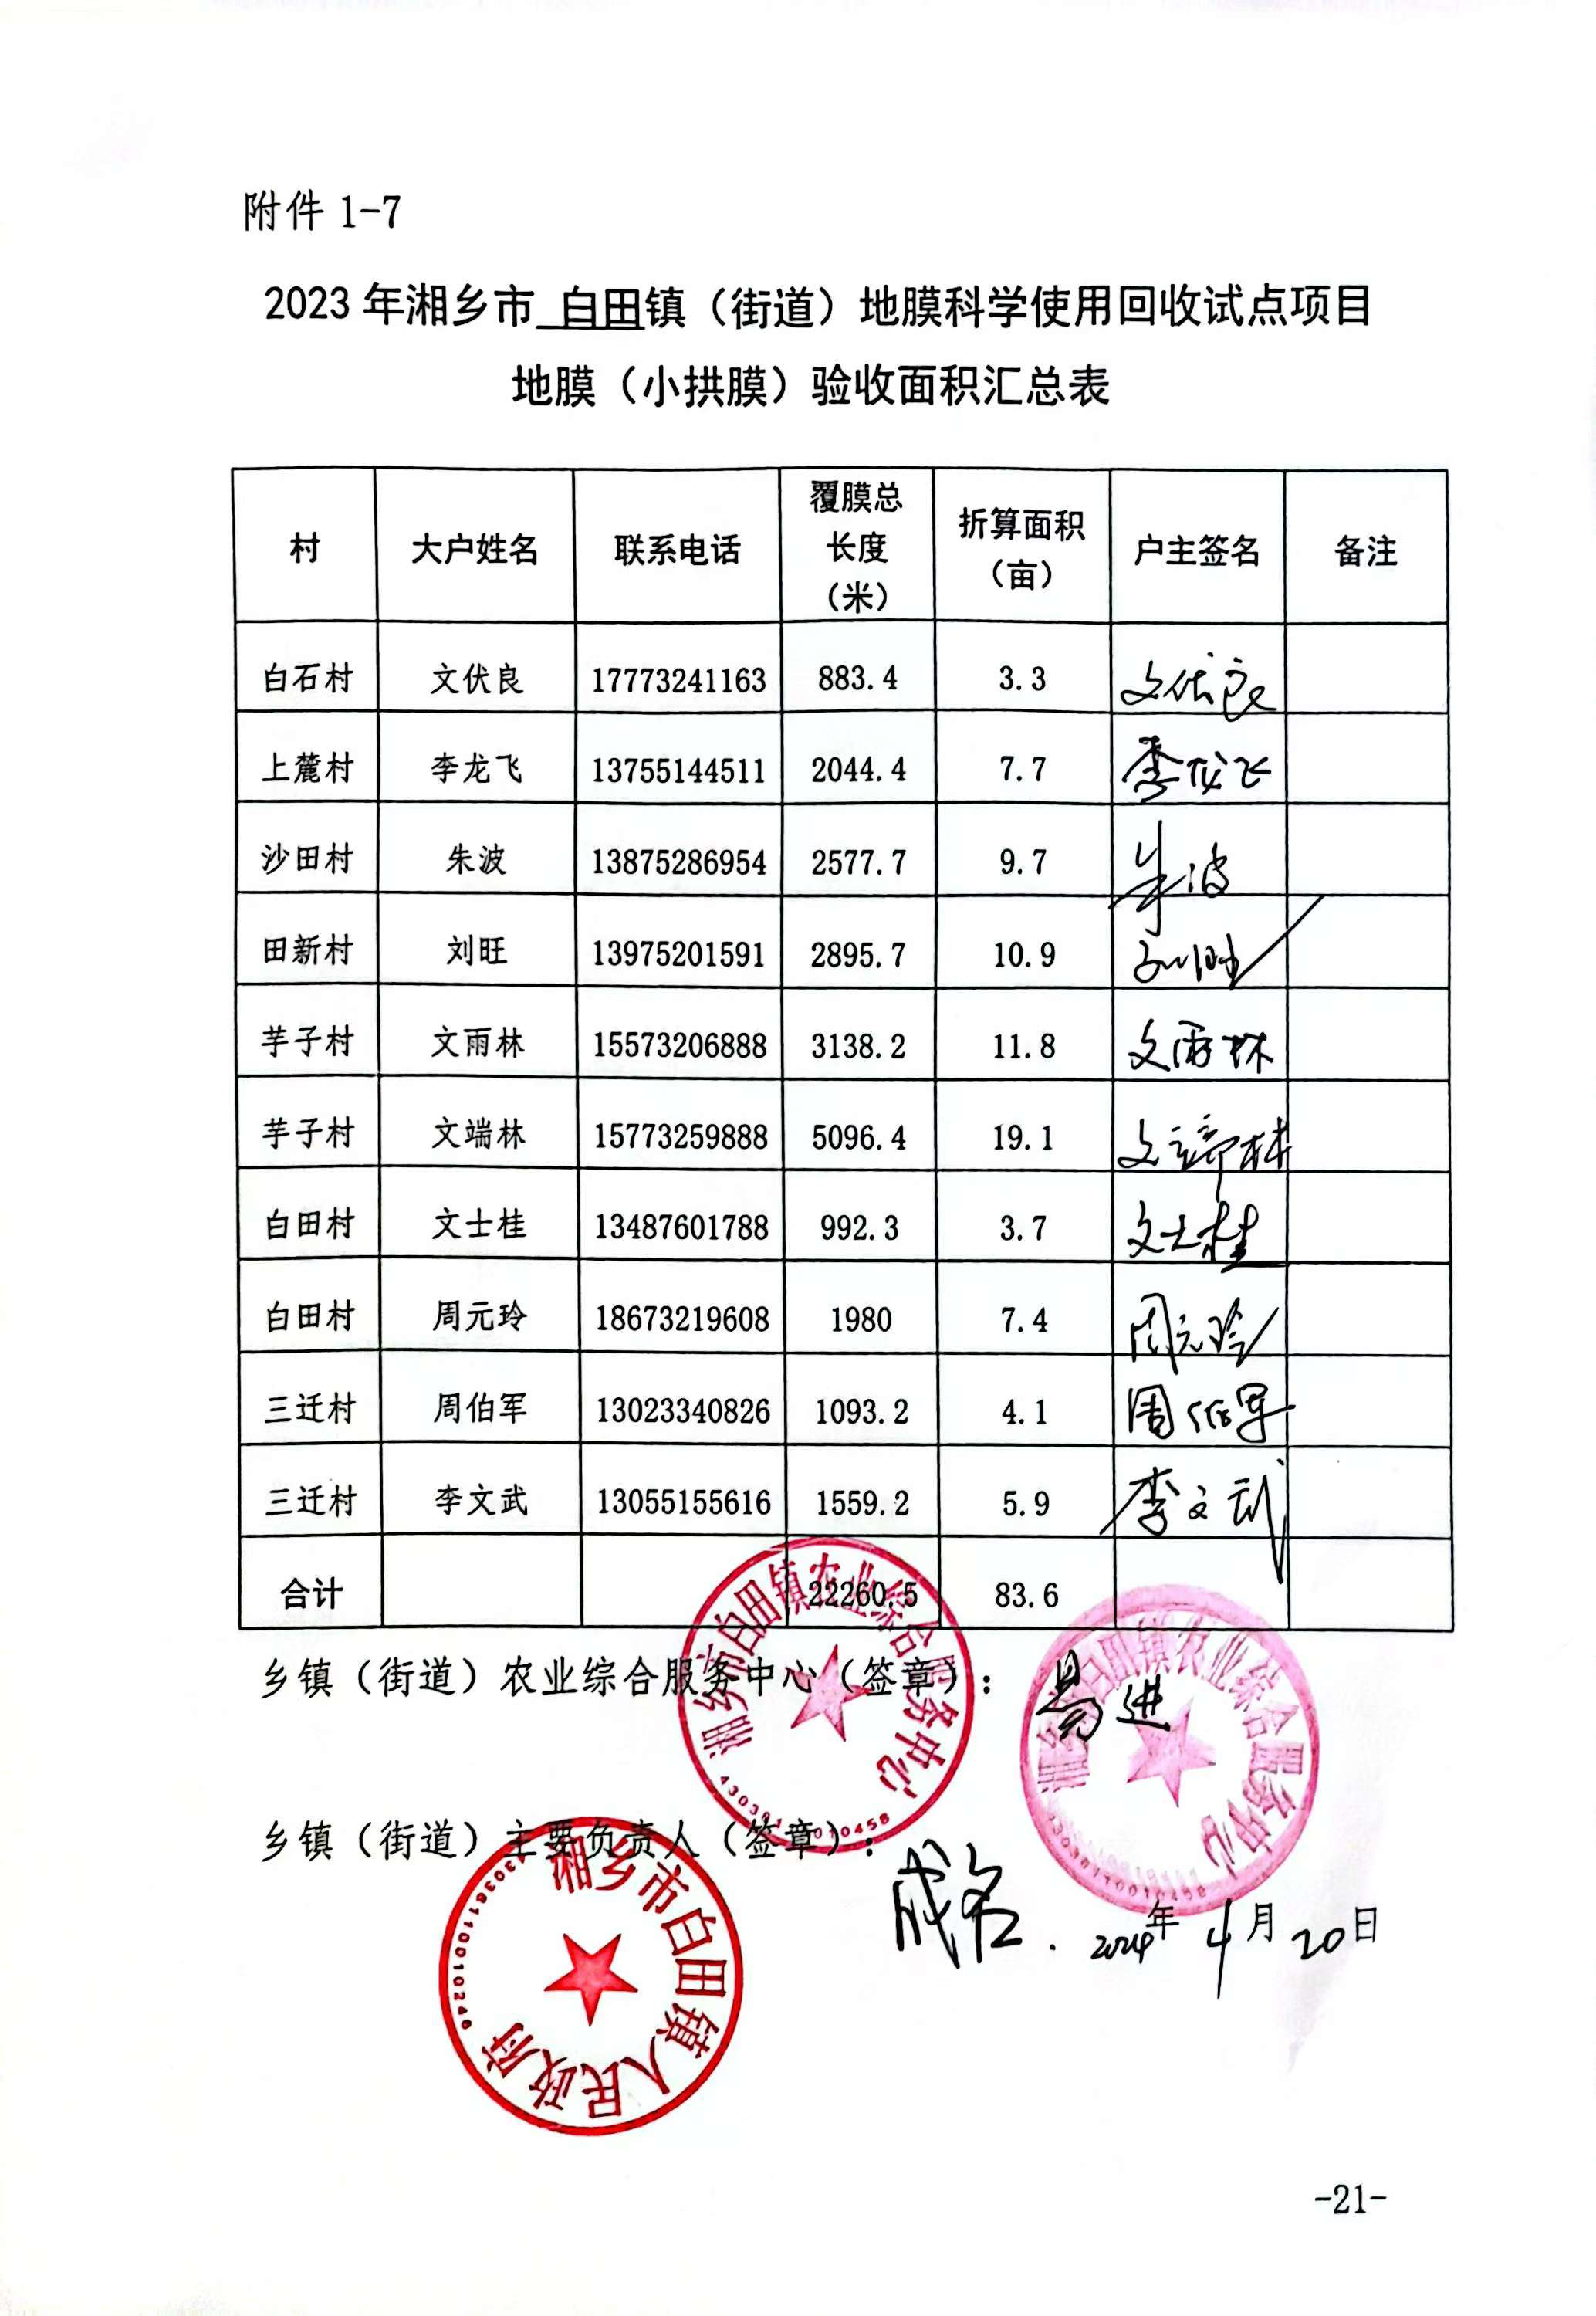 附件 1-7
2023 年湘乡市 白田镇（街道）地膜科学使用回收试点项目
地膜（小拱膜）验收面积汇总表
村 大户姓名 联系电话 覆膜总长度（米） 折算面积（亩） 户主签名 备注
白石村 文伏良 17773241163 883.4 3.3 文伏良
上麓村 李龙飞 13755144511 2044.4 7.7 李龙飞
沙田村 朱波 13875286954 2577.7 9.7 朱波
田新村 刘旺 13975201591 2895.7 10.9 刘旺
芋子村 文雨林 15573206888 3138.2 11.8 文雨林
芋子村 文端林 15773259888 5096.4 19.1 文端林
白田村 文士桂 13487601788 992.3 3.7 文士桂
白田村 周元玲 18673219608 1980 7.4 周元玲
三迁村 周伯军 13023340826 1093.2 4.1 周伯军
三迁村 李文武 13055155616 1559.2 5.9 李文武
合计 22260.5 83.6
乡镇（街道）农业综合服务中心（签章）： 易进
湘乡市白田镇农业综合服务中心
湘乡市白田镇农业综合服务中心
43038110010458
乡镇（街道）主要负责人（签章）：
湘乡市白田镇人民政府
2024年 4月 20日
-21-